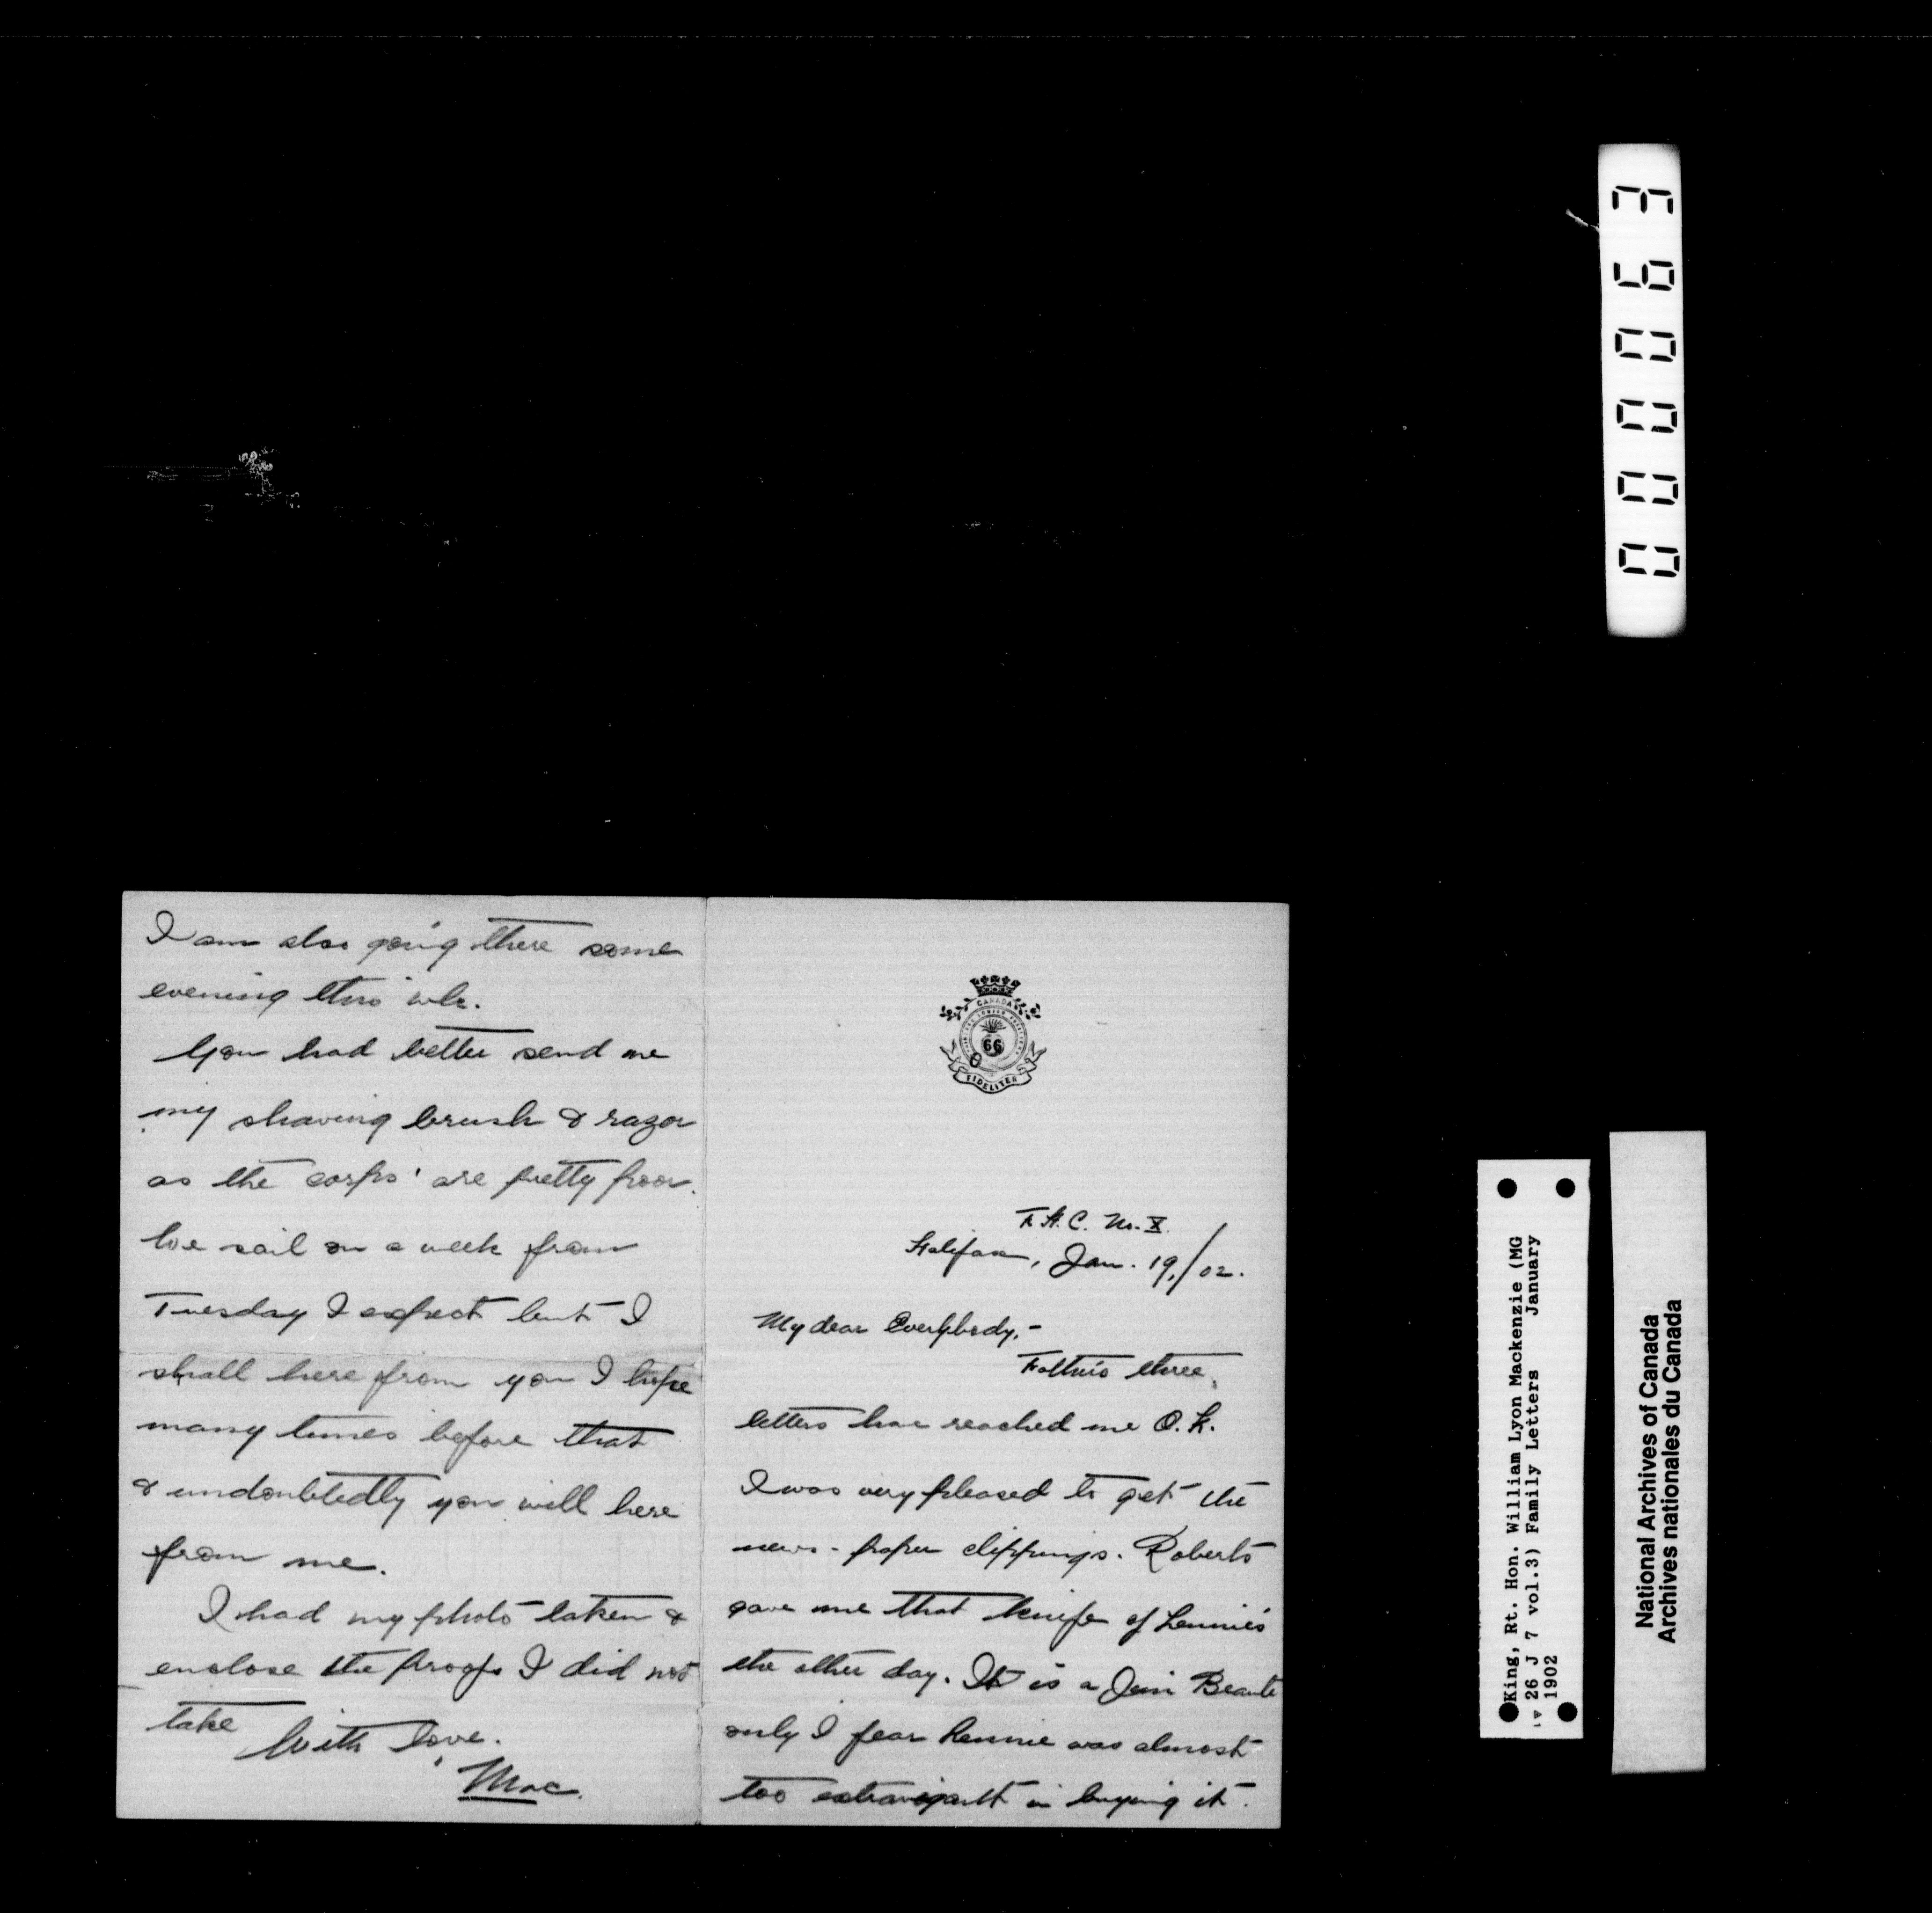 I am also going there some
evening this wk.
You had better send me
my shaving brush & razor
as the corps' are pretty poor.
We sail on a week from
Tuesday I expect but I
shall here from you I hope
many times before that
& undoubtedly you will here
from me.
I had my photo taken &
enclose the proofs I did not
take
With love.
Mac.
CANADA
66
FIDELITER
F.H.C. No. X
Halifax, Jan. 19,/02.
My dear Everybody,-
Father's three
letters have reached me O.K.
I was very pleased to get the
news-paper clippings. Roberts
gave me that knife of Lennie's
the other day. It is a Jim
only I fear Lennie was almost
too in buying it.
000063
King, Rt. Hon. William Lyon Mackenzie (MG
26 J 7 vol.3) Family Letters January
1902
National Archives of Canada
Archives nationales du Canada